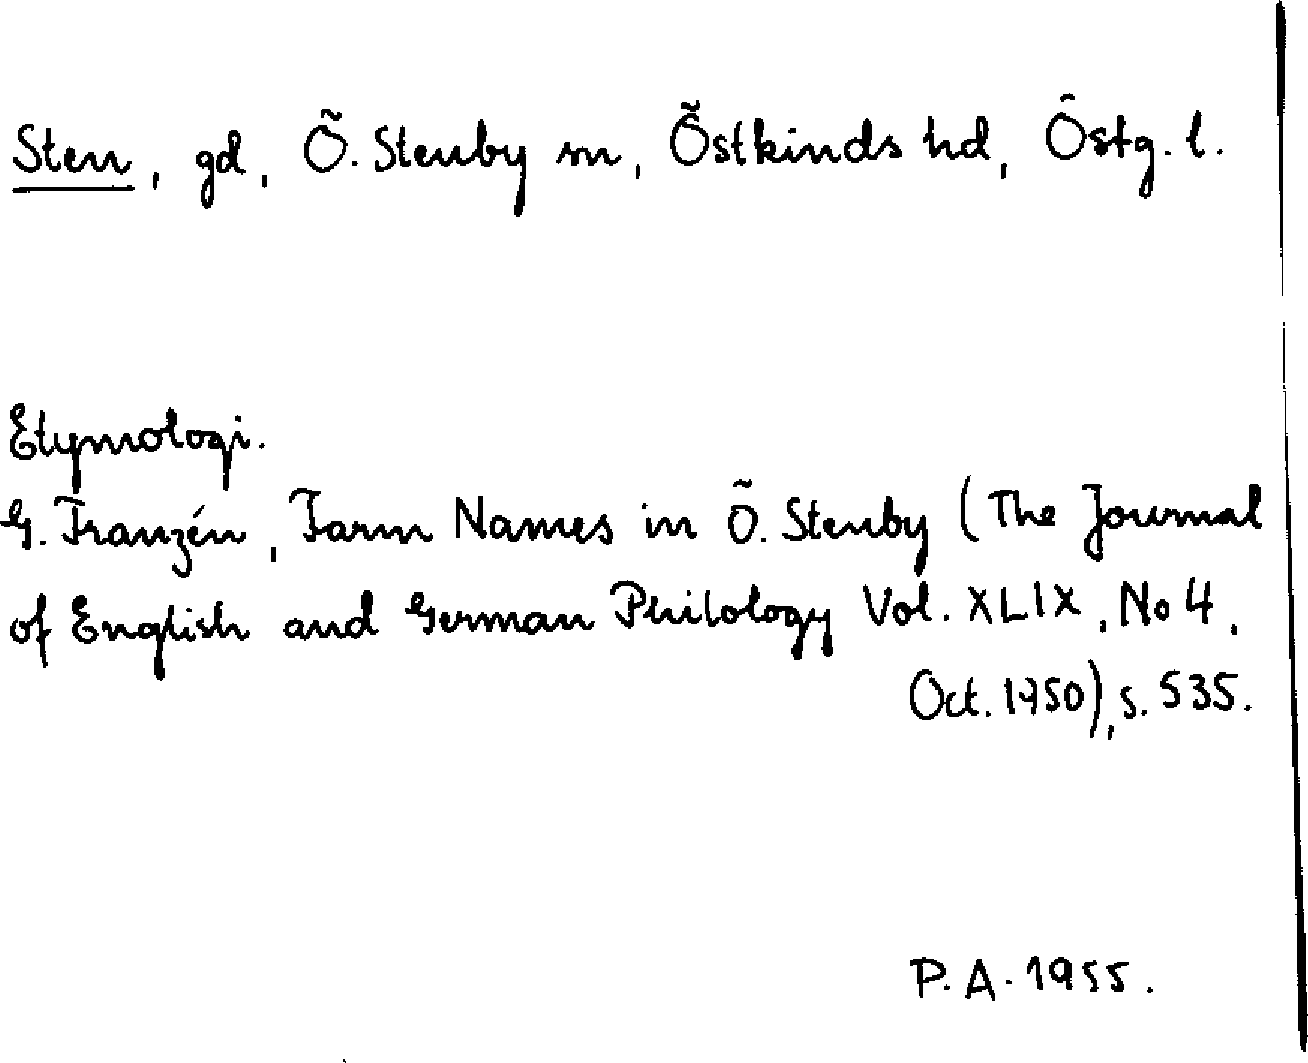 Sten, gd, Ö. Stenby sn, Östkinds hd, Östg. l.
Etymologi.
G. Franzén, Farm Names in Ö. Stenby (The Journal
of English and German Philology Vol. XLIX, No 4,
Oct. 1950), s. 535.
P. A. 1955.